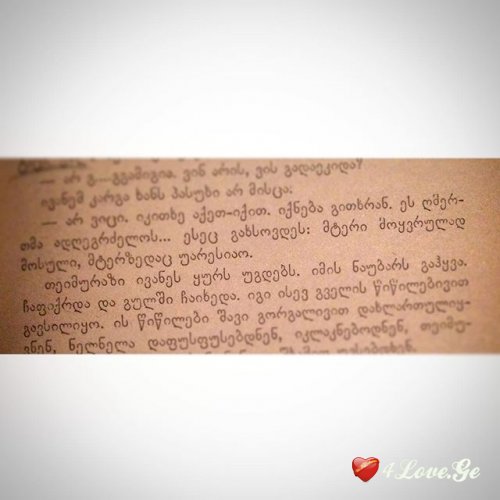 — არ გ....გვამიგია. ვინ არის, ვის გადაეკიდა?
ივანემ კარგა ხანს პასუხი არ მისცა:
— არ ვიცი. იკითხე აქეთ-იქით. იქნება გითხრან. ეს ღმერ-
თმა ადღეგრძელოს... ესეც გახსოვდეს: მტერი მოყვრულად
მოსული, მტერზედაც უარესიაო.
თეიმურაზი ივანეს ყურს უგდებს. იმის ნაუბარს გაჰყვა.
ჩაფიქრდა და გულში ჩაიხედა. იგი ისევ გველის წიწილებივით
გავსილიყო. ის წიწილები შავი გორგალივით დახლართულიყ-
ვნენ, ნელნელა დაფუსფუსებდნენ, იკლაკნებოდნენ, თეიმუ-
4Love.Ge